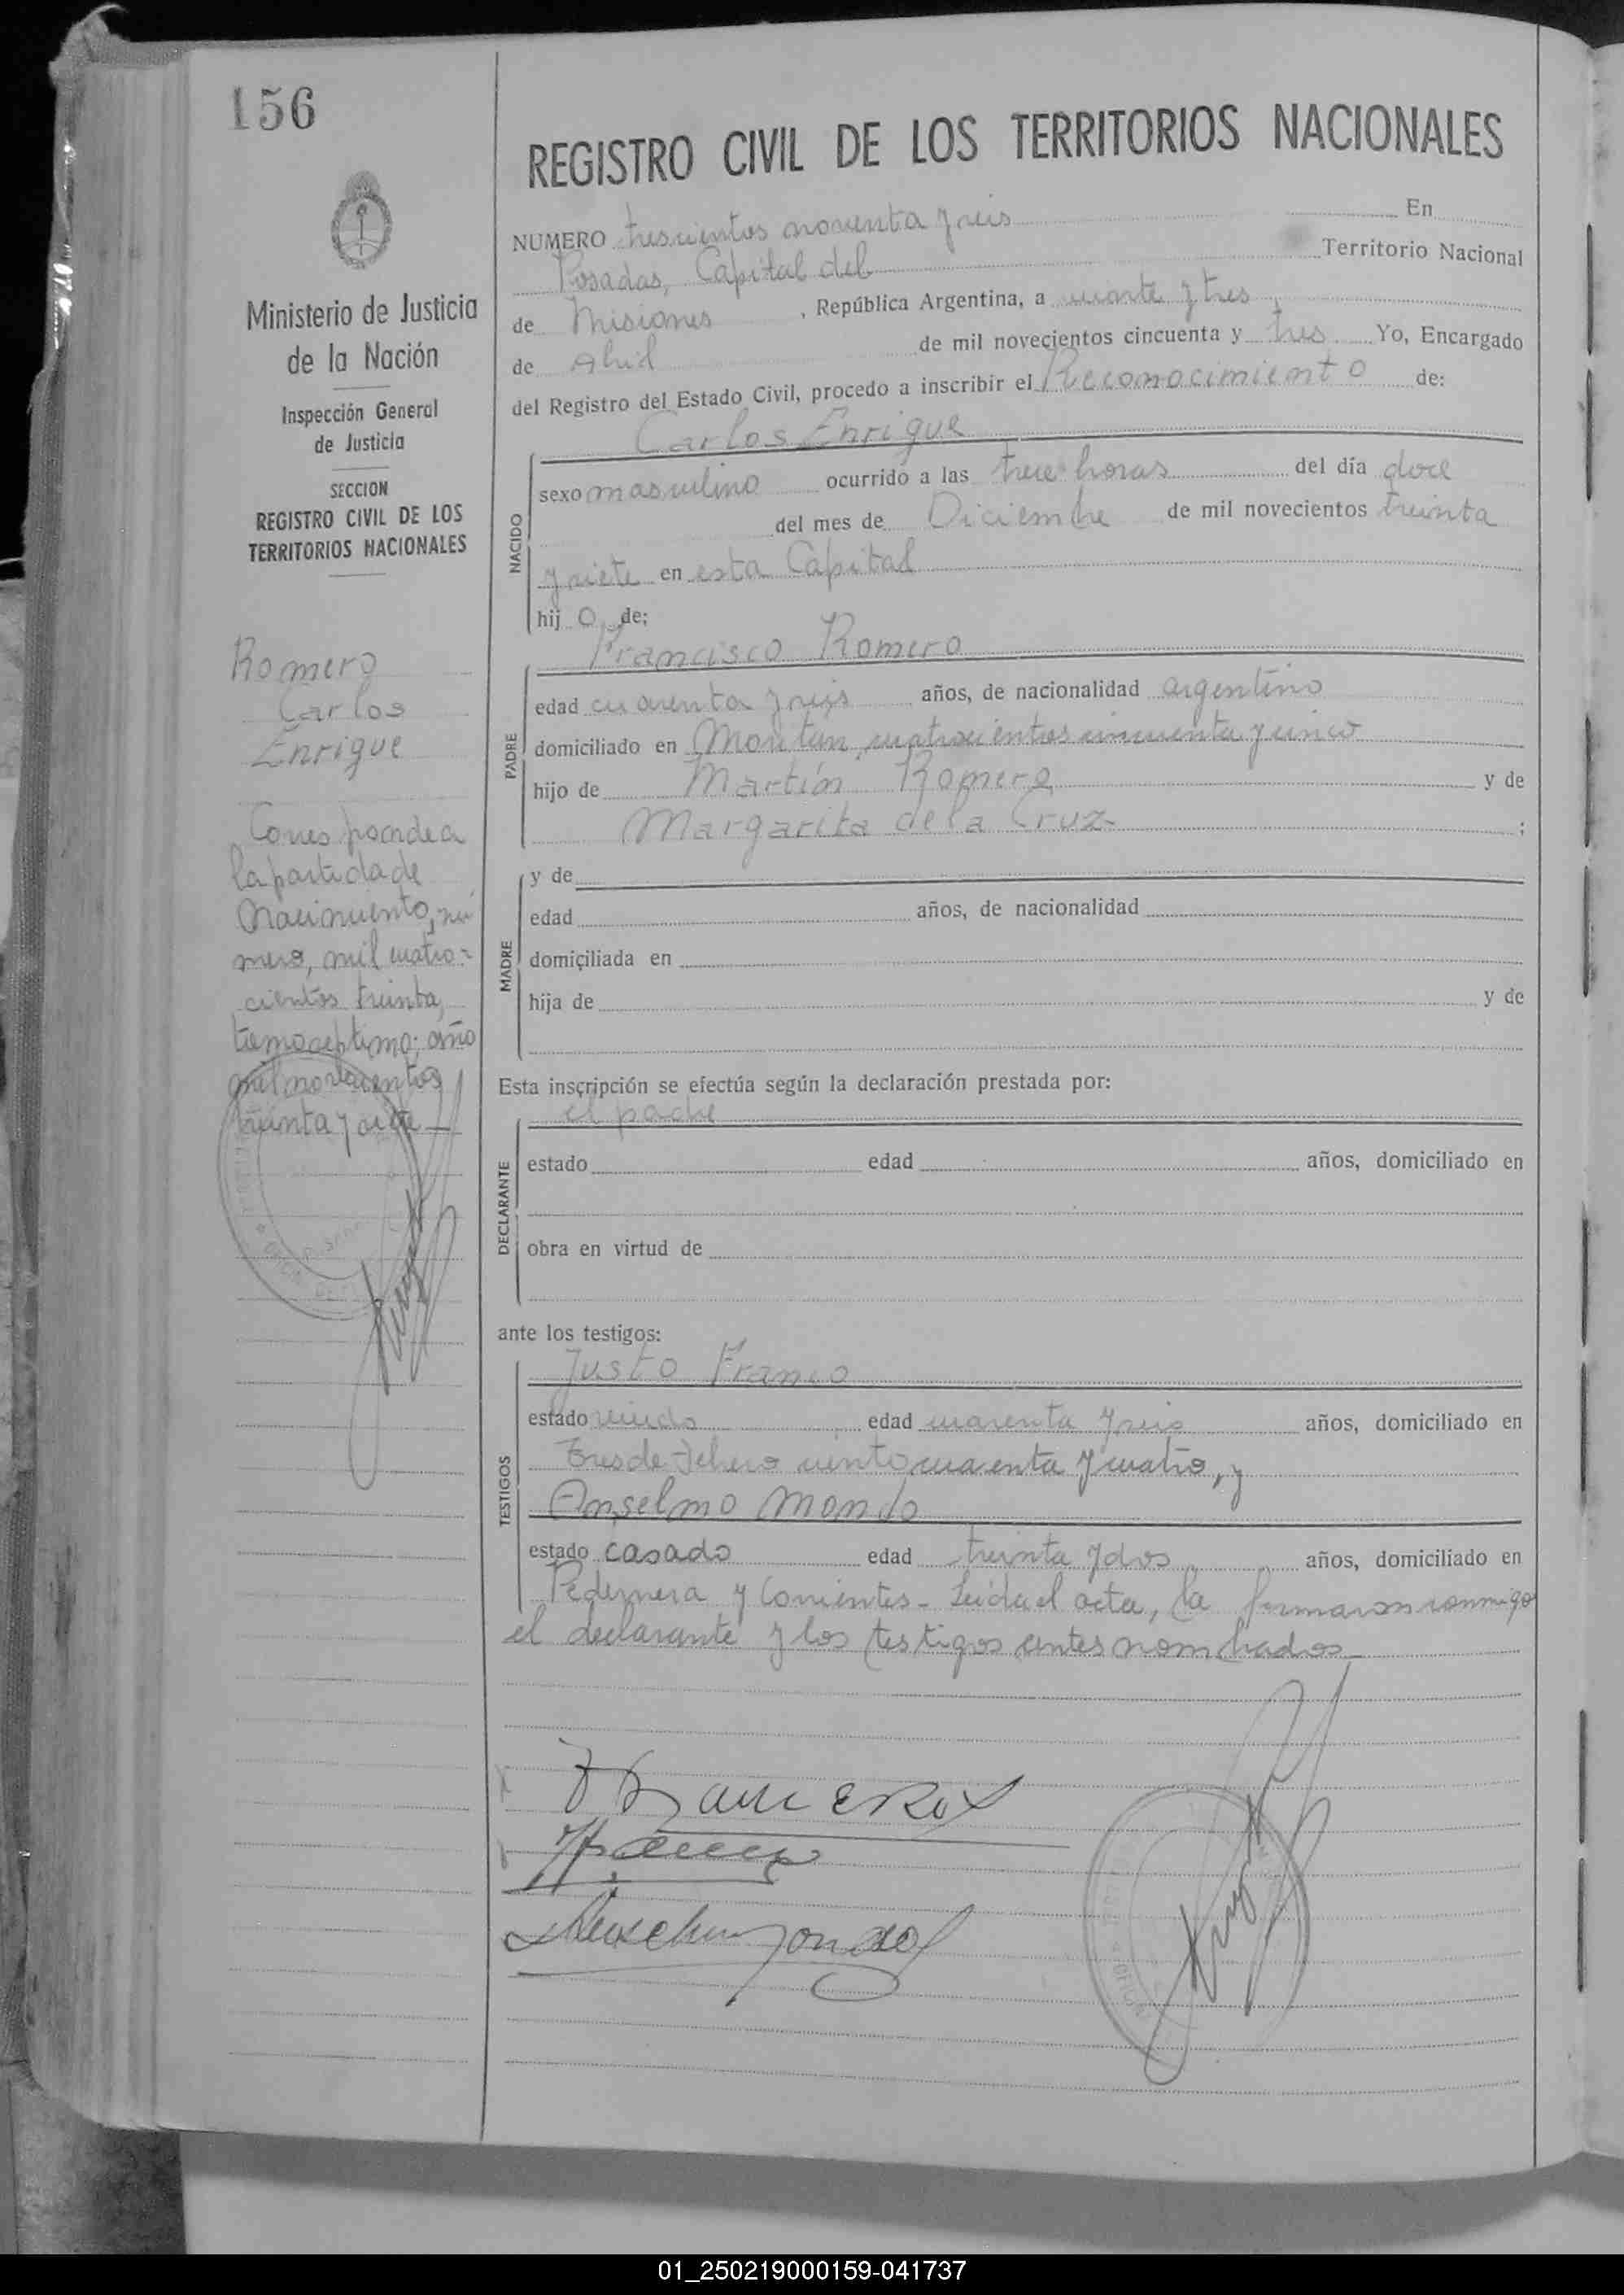 156
Ministerio de Justicia
de la Nación
Inspección General
de Justicia
SECCION
REGISTRO CIVIL DE LOS
TERRITORIOS NACIONALES
Romero
Carlos
Enrique
Corresponde a
la partida de
Nacimiento, nú
mero, mil cuatro=
cientos treinta,
tomo septimo; año
mil novecientos
treinta y siete
REGISTRO CIVIL DE LOS TERRITORIOS NACIONALES
NUMERO trescientos noventa y seis En
Posadas, Capital del Territorio Nacional
de Misiones, República Argentina, a veinte y tres
de Abril de mil novecientos cincuenta y tres Yo, Encargado
del Registro del Estado Civil, procedo a inscribir el Reconocimiento de:
Carlos Enrique
NACIDO
sexo masculino ocurrido a las trece horas del día doce
del mes de Diciembre de mil novecientos treinta
y siete en esta Capital
hij o de:
Francisco Romero
PADRE
edad cuarenta y seis años, de nacionalidad argentino
domiciliado en cuatrocientos cincuenta y cinco
hijo de Martín Romero y de
Margarita de la Cruz ;
MADRE
y de
edad años, de nacionalidad
domiciliada en
hija de y de
Esta inscripción se efectúa según la declaración prestada por:
el padre
DECLARANTE
estado edad años, domiciliado en
obra en virtud de
ante los testigos:
Justo Franco
TESTIGOS
estado viudo edad cuarenta y seis años, domiciliado en
Tres de Febrero ciento cuarenta y cuatro, y
Anselmo Mondo
estado casado edad treinta y dos años, domiciliado en
Pedernera y Corrientes - Leida el acta, la firmaron conmigo
el declarante y los testigos antes nombrados
01_250219000159-041737